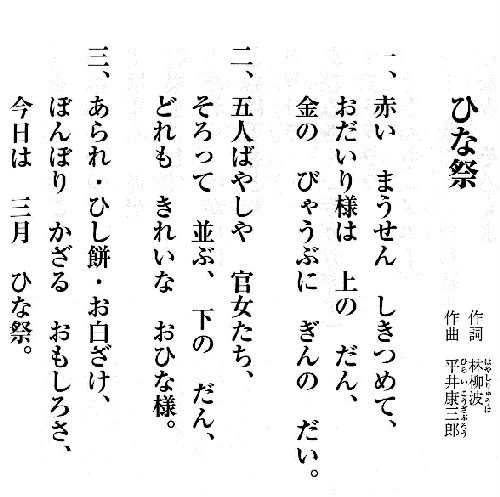 ひな祭
作詞 林柳波
はやしりゅうは
作曲 平井康三郎
ひらいこうざぶろう
一、赤い まうせん しきつめて、
おだいり様は 上の だん、
金の びゃうぶに ぎんの だい。
二、五人ばやしや 官女たち、
そろって 並ぶ、下の だん、
どれも きれいな おひな様。
三、あられ・ひし餅・お白ざけ、
ぼんぼり かざる おもしろさ、
今日は 三月 ひな祭。